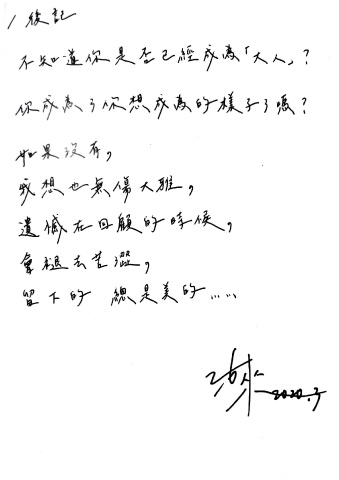 /後記
不知道你是否已經成為「大人」？
你成為了你想成為的樣子了嗎？
如果沒有，
我想也無傷大雅。
遺憾在回顧的時候，
會褪去苦澀，
留下的 總是美的……
2020.3